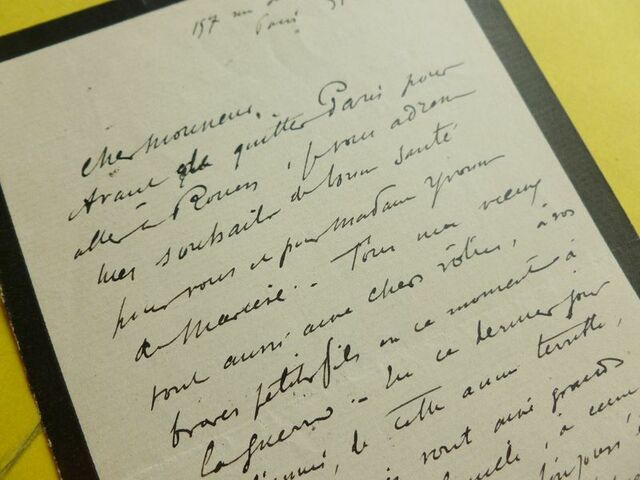 157 rue de
Paris
Cher monsieur,
Avant de quitter Paris pour
aller à Rouen, je vous adresse
mes souhaits de bonne santé
pour vous et pour Madame Yvonne
de Tous mes vœux
vont aussi aux chers vôtres, à vos
braves petits fils en ce moment à
la guerre - En ce dernier jour
de cette année terrible,
vont aux grands
à ceux
toujours